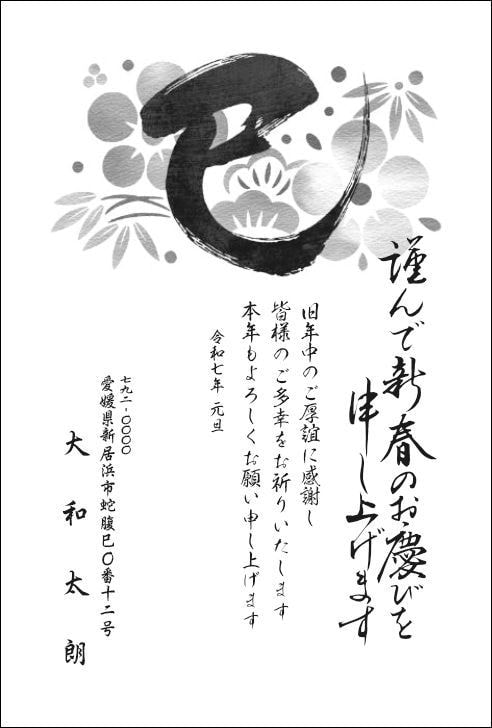 巳
謹んで新春のお慶びを
申し上げます
旧年中のご厚誼に感謝し
皆様のご多幸をお祈りいたします
本年もよろしくお願い申し上げます
令和七年 元旦
七九二-〇〇〇〇
愛媛県新居浜市蛇腹巳〇番十二号
大和太朗